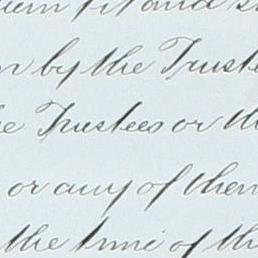 fit and
by the Trustees
Trustees or the
or any of them
the time of the